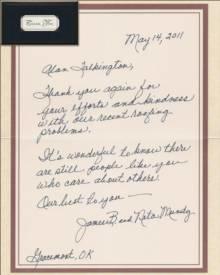 May 14, 2011
Alan Falkington,
Thank you again for
your efforts and kindness
with our recent roofing
problems.
It's wonderful to know there
are still people like you
who care about others.
Our best to you —
James B. and Reta Mundy
Gracemont, OK